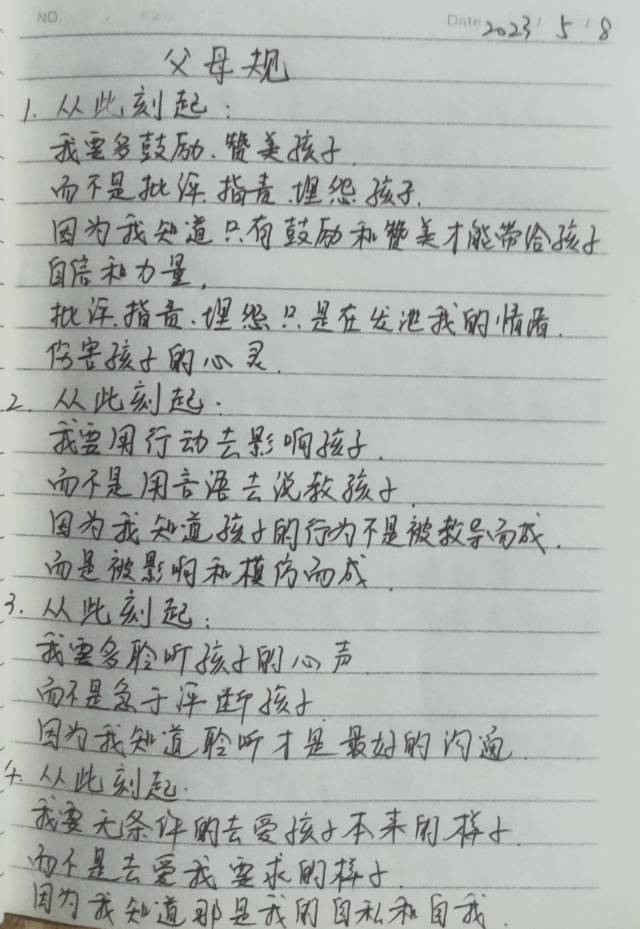 NO.
Date 2023 / 5 / 8
父母规
1. 从此刻起:
我要多鼓励、赞美孩子.
而不是批评.指责.埋怨孩子.
因为我知道只有鼓励和赞美才能带给孩子
自信和力量.
批评.指责.埋怨只是在发泄我的情绪.
伤害孩子的心灵.
2. 从此刻起:
我要用行动去影响孩子.
而不是用言语去说教孩子.
因为我知道孩子的行为不是被教导而成.
而是被影响和模仿而成.
3. 从此刻起:
我要多聆听孩子的心声
而不是急于评断孩子
因为我知道聆听才是最好的沟通.
4. 从此刻起.
我要无条件的去爱孩子本来的样子.
而不是去爱我要求的样子.
因为我知道那是我的自私和自我.